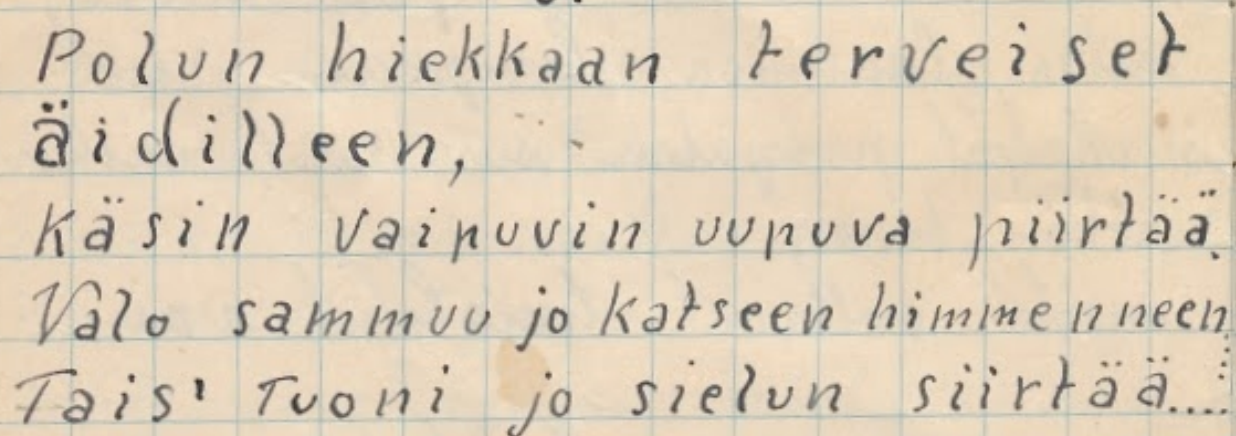 Polun hiekkaan terveiset
äidilleen,
Käsin vaipuvin uupuva piirtää.
Valo sammuu jo katseen himmenneen
Tais' Tuoni jo sielun siirtää....